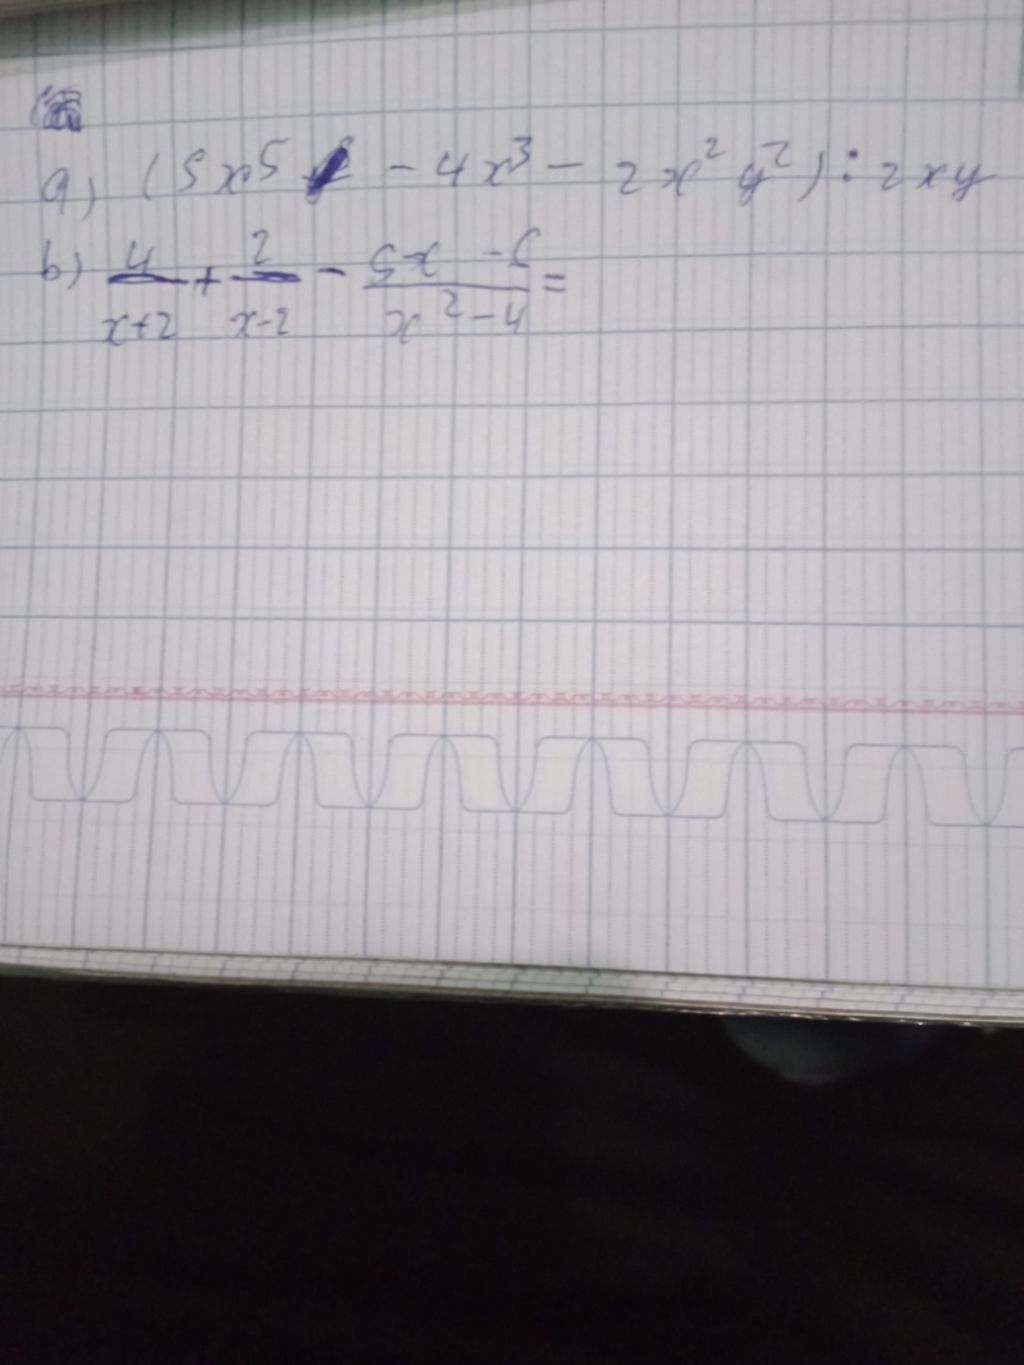 a) (5x⁵ - 4x³ - 2x²y²) : 2xy
b) 4/(x+2) + 2/(x-2) - (5x - 6)/(x² - 4) =